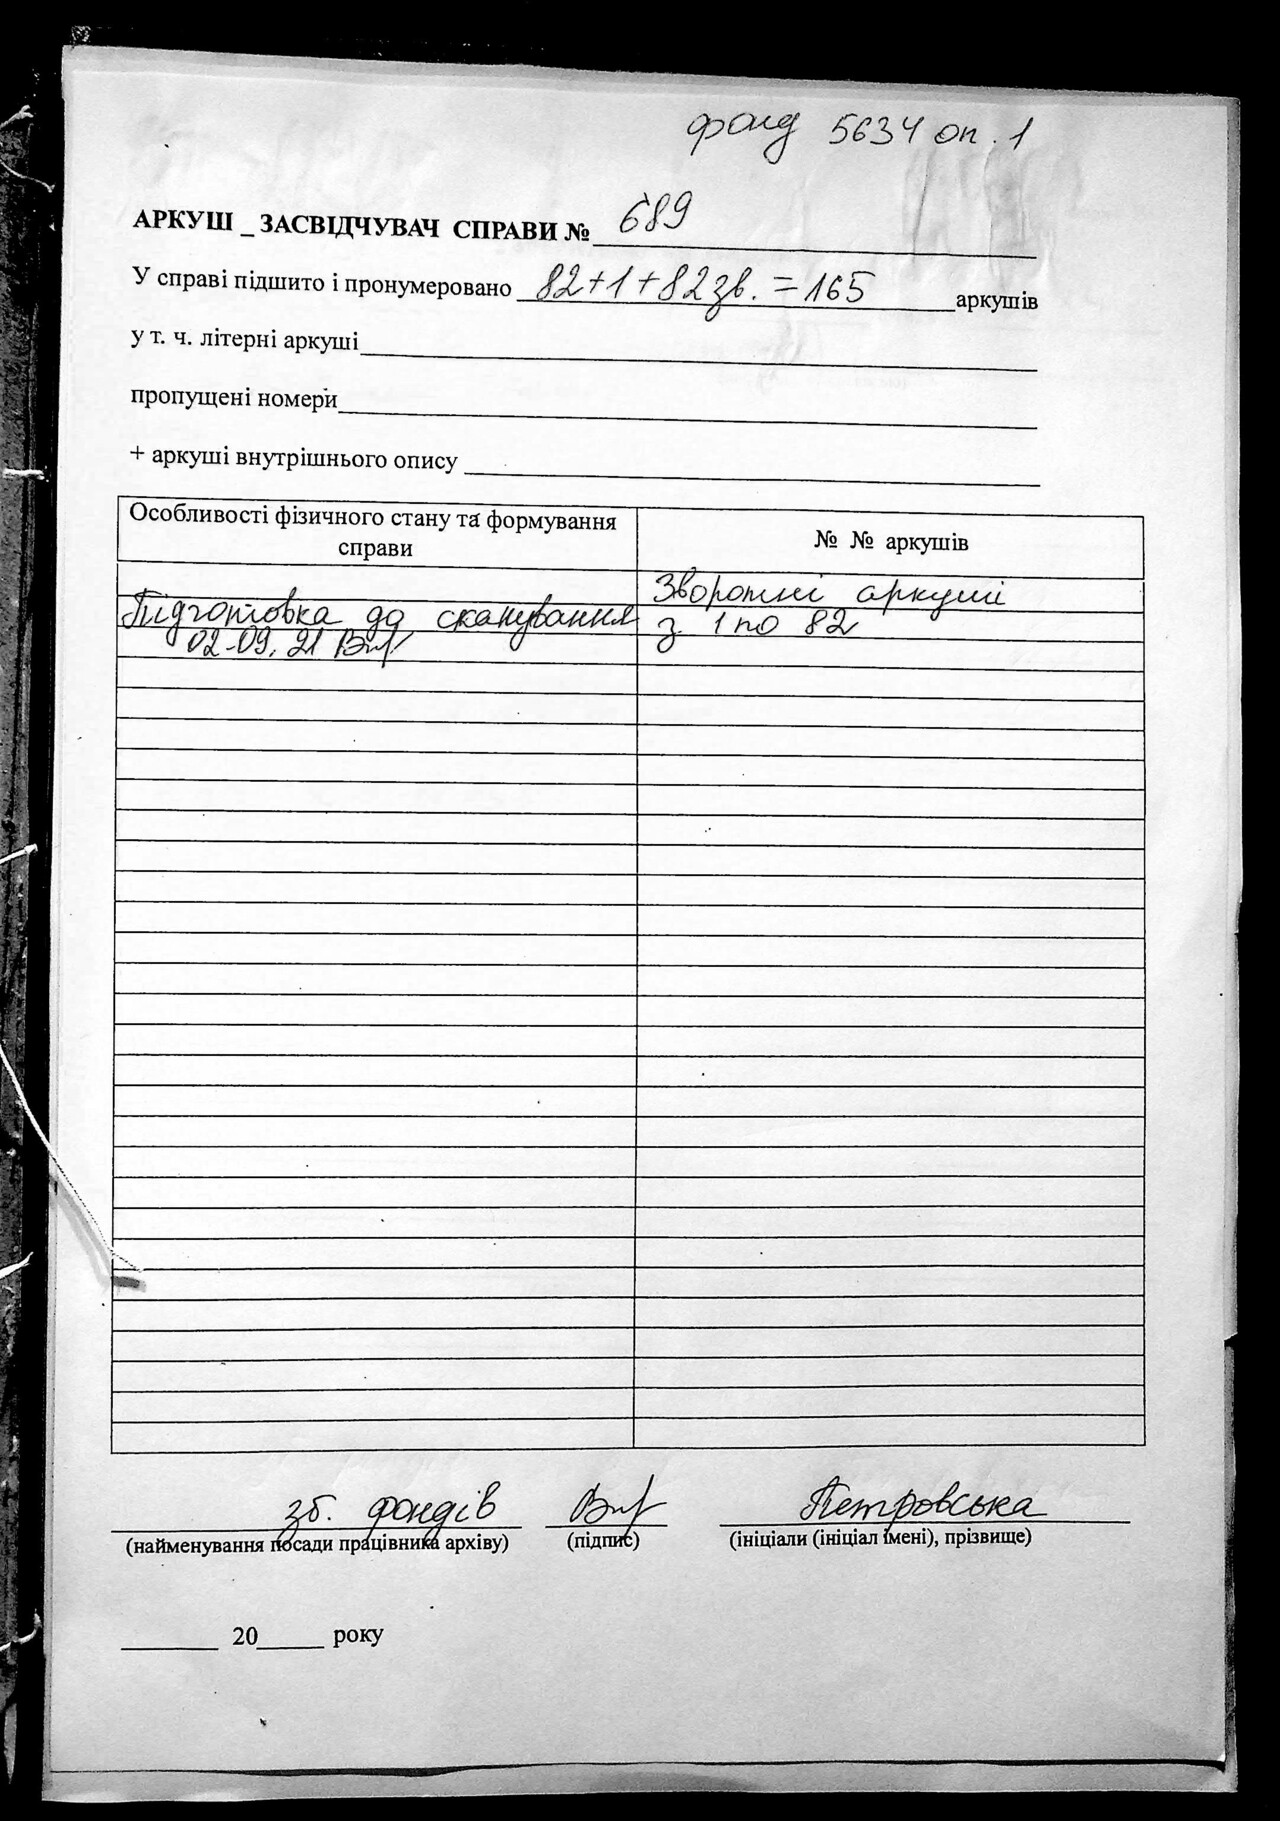 фонд 5634 оп. 1
АРКУШ _ ЗАСВІДЧУВАЧ СПРАВИ № 689
У справі підшито і пронумеровано 82+1+82зв. = 165 аркушів
у т. ч. літерні аркуші
пропущені номери
+ аркуші внутрішнього опису
Особливості фізичного стану та формування справи
№ № аркушів
Зворотні аркуші
Підготовка до сканування
з 1 по 82
02.09.21
зб. фондів Петровська
(найменування посади працівника архіву) (підпис) (ініціали (ініціал імені), прізвище)
20 року